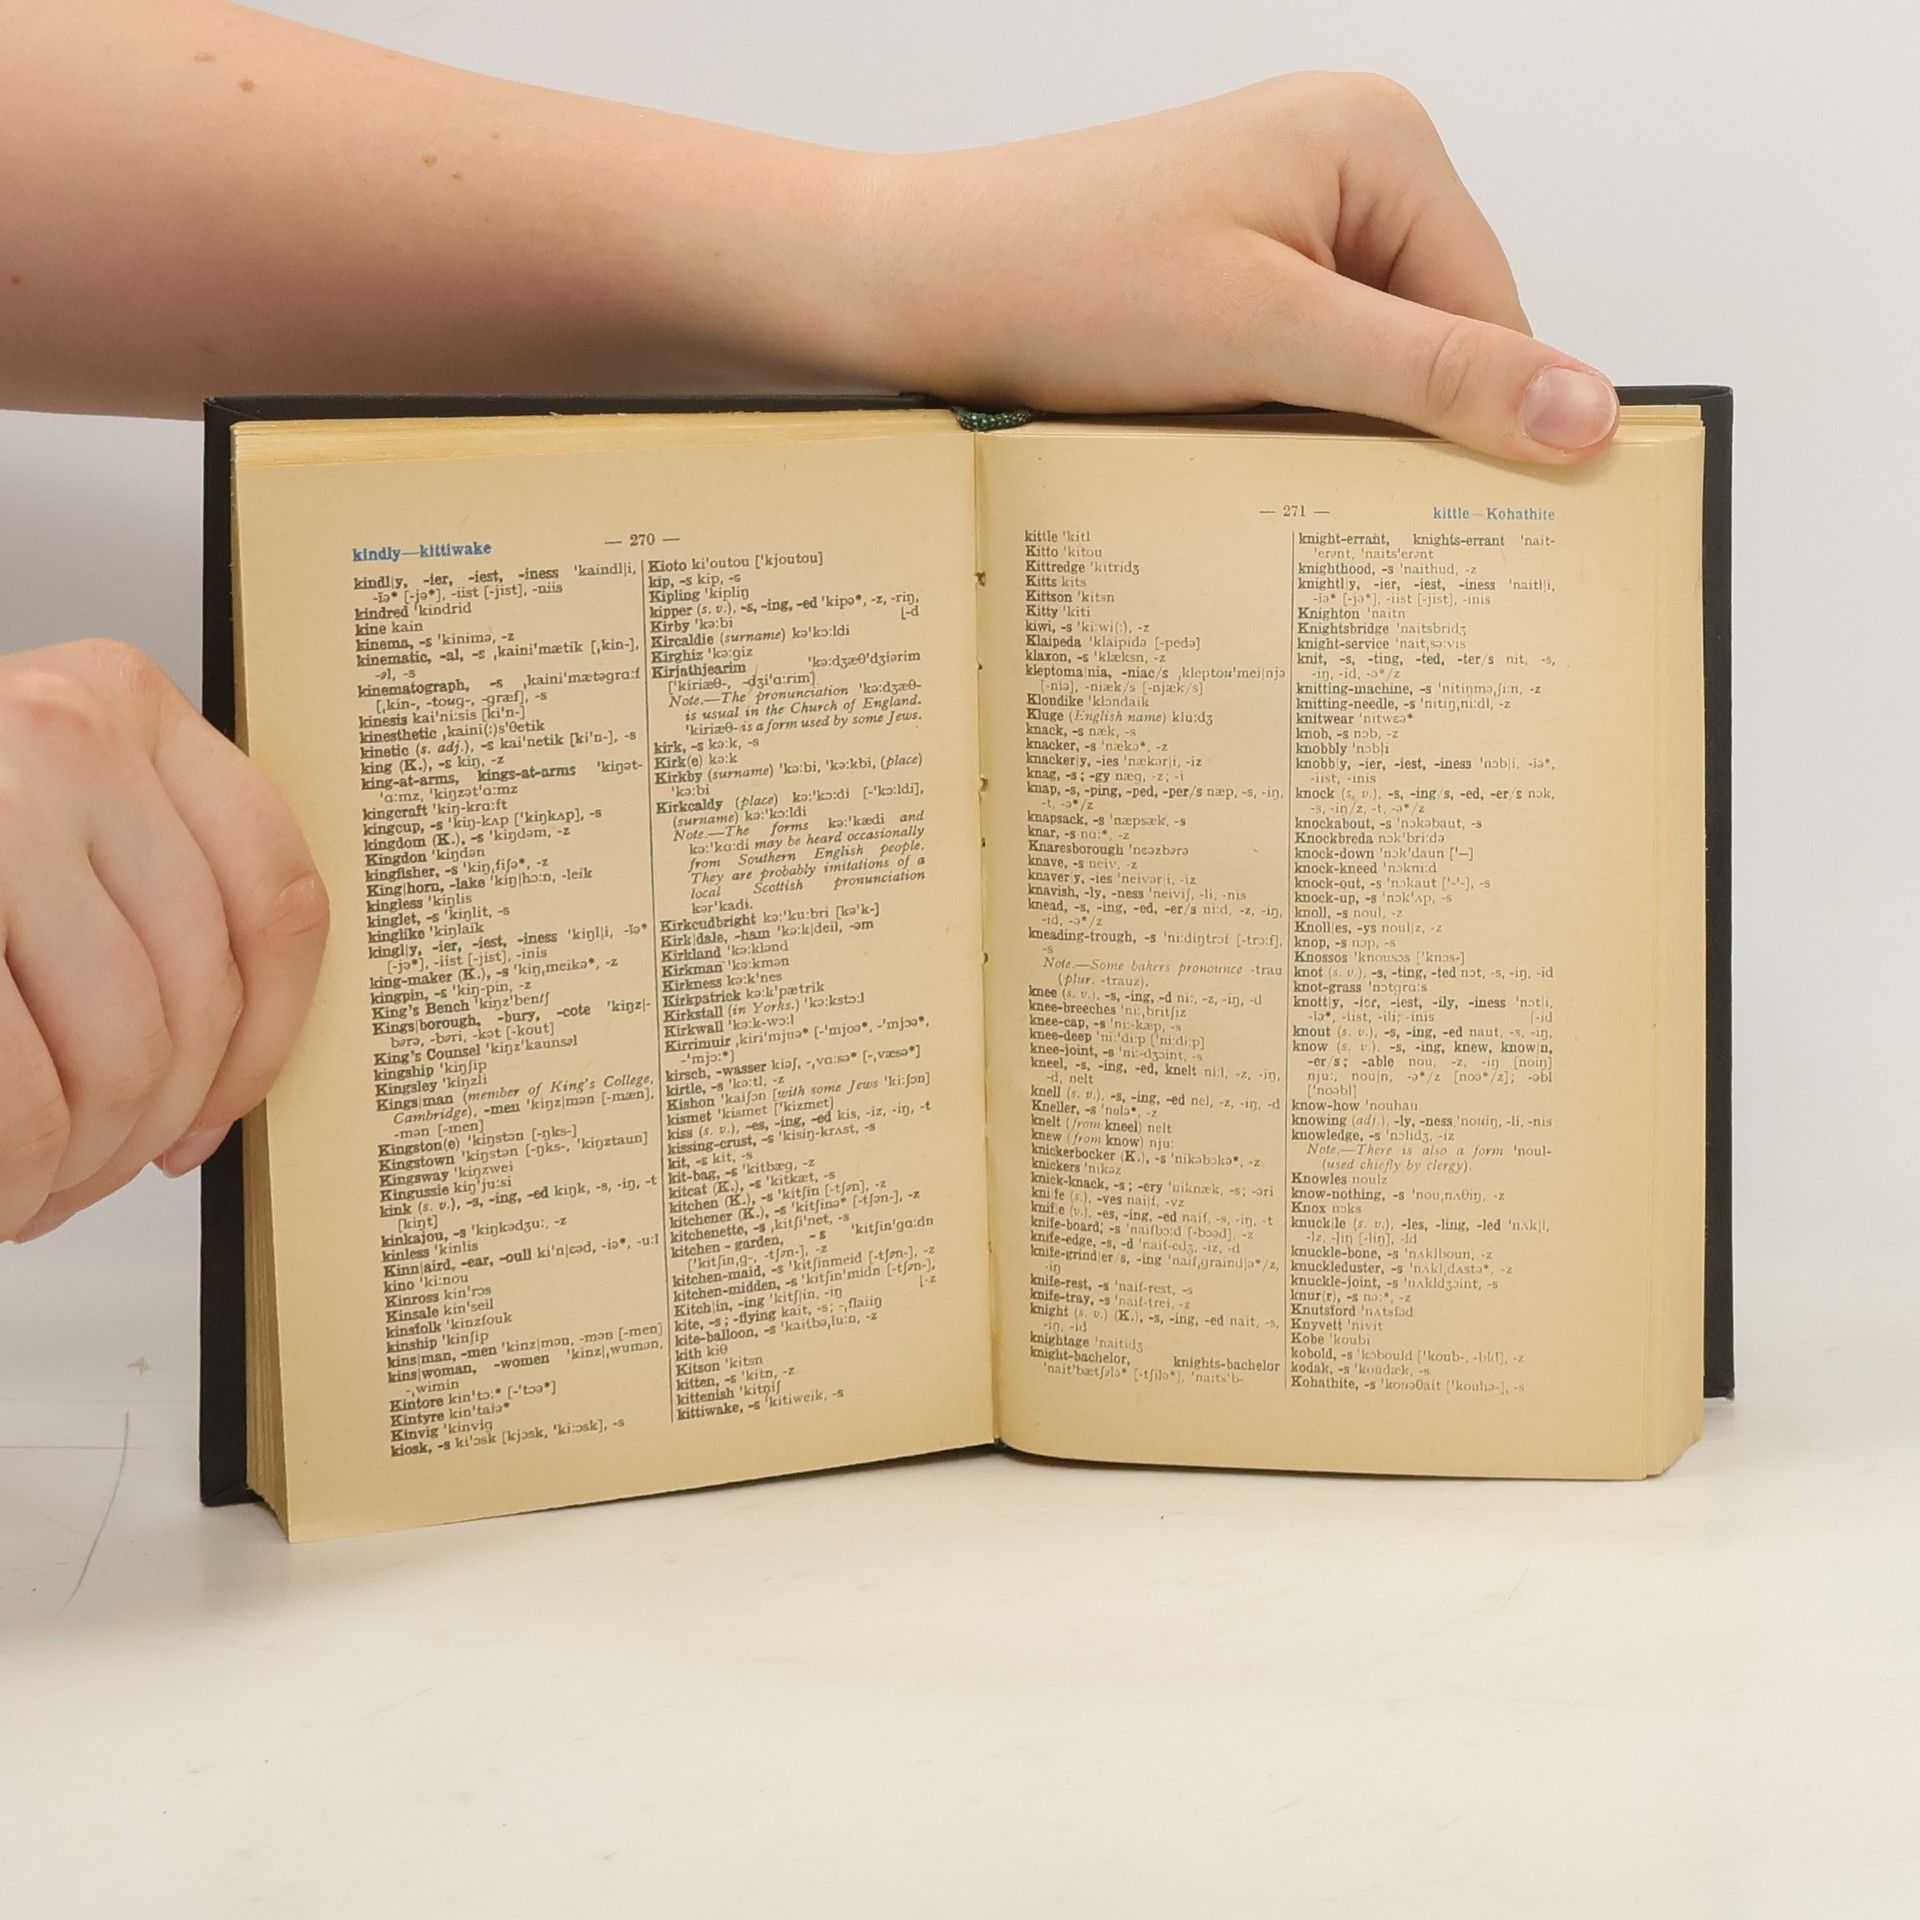 kindly—kittiwake
— 270 —
kindl|y, -ier, -iest, -iness 'kaindl|i,
-iə* [-jə*], -iist [-jist], -niis
kindred 'kindrid
kine kain
kinema, -s 'kinimə, -z
kinematic, -al, -s ˌkaini'mætik [ˌkin-],
-əl, -s
kinematograph, -s ˌkaini'mætəgrɑ:f
[ˌkin-, -toug-, -græf], -s
kinesis kai'ni:sis [ki'n-]
kinesthetic ˌkaini(:)s'θetik
kinetic (s. adj.), -s kai'netik [ki'n-], -s
king (K.), -s kiŋ, -z
king-at-arms, kings-at-arms 'kiŋət-
'ɑ:mz, 'kiŋzət'ɑ:mz
kingcraft 'kiŋ-krɑ:ft
kingcup, -s 'kiŋ-kʌp ['kiŋkʌp], -s
kingdom (K.), -s 'kiŋdəm, -z
Kingdon 'kiŋdən
kingfisher, -s 'kiŋˌfiʃə*, -z
King|horn, -lake 'kiŋ|hɔ:n, -leik
kingless 'kiŋlis
kinglet, -s 'kiŋlit, -s
kinglike 'kiŋlaik
kingl|y, -ier, -iest, -iness 'kiŋl|i, -iə*
[-jə*], -iist [-jist], -inis
king-maker (K.), -s 'kiŋˌmeikə*, -z
kingpin, -s 'kiŋ-pin, -z
King's Bench 'kiŋz'benʃ
Kings|borough, -bury, -cote 'kiŋz|-
bərə, -bəri, -kət [-kout]
King's Counsel 'kiŋz'kaunsəl
kingship 'kiŋʃip
Kingsley 'kiŋzli
Kings|man (member of King's College,
Cambridge), -men 'kiŋz|mən [-mæn],
-mən [-men]
Kingston(e) 'kiŋstən [-ŋks-]
Kingstown 'kiŋstən [-ŋks-, 'kiŋztaun]
Kingsway 'kiŋzwei
Kingussie kiŋ'ju:si
kink (s. v.), -s, -ing, -ed kiŋk, -s, -iŋ, -t
[kiŋt]
kinkajou, -s 'kiŋkədʒu:, -z
kinless 'kinlis
Kinn|aird, -ear, -oull ki'n|ɛəd, -iə*, -u:l
kino 'ki:nou
Kinross kin'rɔs
Kinsale kin'seil
kinsfolk 'kinzfouk
kinship 'kinʃip
kins|man, -men 'kinz|mən, -mən [-men]
kins|woman, -women 'kinz|ˌwumən,
-ˌwimin
Kintore kin'tɔ:* [-'tɔə*]
Kintyre kin'taiə*
Kinvig 'kinvig
kiosk, -s ki'ɔsk [kjɔsk, 'ki:ɔsk], -s
Kioto ki'outou ['kjoutou]
kip, -s kip, -s
Kipling 'kipliŋ
kipper (s. v.), -s, -ing, -ed 'kipə*, -z, -riŋ,
[-d
Kirby 'kə:bi
Kircaldie (surname) kə'kɔ:ldi
Kirghiz 'kə:giz
Kirjathjearim 'kə:dʒæθ'dʒiərim
['kiriæθ-, -dʒi'ɑ:rim]
Note.—The pronunciation 'kə:dʒæθ-
is usual in the Church of England.
'kiriæθ- is a form used by some Jews.
kirk, -s kə:k, -s
Kirk(e) kə:k
Kirkby (surname) 'kə:bi, 'kə:kbi, (place)
'kə:bi
Kirkcaldy (place) kə:'kɔ:di [-'kɔ:ldi],
(surname) kə:'kɔ:ldi
Note.—The forms kə:'kædi and
kə:'kɑ:di may be heard occasionally
from Southern English people.
They are probably imitations of a
local Scottish pronunciation
kər'kadi.
Kirkcudbright kə:'ku:bri [kə'k-]
Kirk|dale, -ham 'kə:k|deil, -əm
Kirkland 'kə:klənd
Kirkman 'kə:kmən
Kirkness kə:k'nes
Kirkpatrick kə:k'pætrik
Kirkstall (in Yorks.) 'kə:kstɔ:l
Kirkwall 'kə:k-wɔ:l
Kirrimuir ˌkiri'mjuə* [-'mjoə*, -'mjɔə*,
-'mjɔ:*]
kirsch, -wasser kiəʃ, -ˌvɑ:sə* [-ˌvæsə*]
kirtle, -s 'kə:tl, -z
Kishon 'kaiʃɔn [with some Jews 'ki:ʃɔn]
kismet 'kismet ['kizmet]
kiss (s. v.), -es, -ing, -ed kis, -iz, -iŋ, -t
kissing-crust, -s 'kisiŋ-krʌst, -s
kit, -s kit, -s
kit-bag, -s 'kitbæg, -z
kitcat (K.), -s 'kitkæt, -s
kitchen (K.), -s 'kitʃin [-tʃən], -z
kitchener (K.), -s 'kitʃinə* [-tʃən-], -z
kitchenette, -s ˌkitʃi'net, -s
kitchen-garden, -s 'kitʃin'gɑ:dn
['kitʃinˌg-, -tʃən-], -z
kitchen-maid, -s 'kitʃinmeid [-tʃən-], -z
kitchen-midden, -s 'kitʃin'midn [-tʃən-],
[-z
Kitch|in, -ing 'kitʃ|in, -iŋ
kite, -s; -flying kait, -s; -ˌflaiiŋ
kite-balloon, -s 'kaitbəˌlu:n, -z
kith kiθ
Kitson 'kitsn
kitten, -s 'kitn, -z
kittenish 'kitniʃ
kittiwake, -s 'kitiweik, -s
— 271 —
kittle—Kohathite
kittle 'kitl
Kitto 'kitou
Kittredge 'kitridʒ
Kitts kits
Kittson 'kitsn
Kitty 'kiti
kiwi, -s 'ki:wi(:), -z
Klaipeda 'klaipidə [-pedə]
klaxon, -s 'klæksn, -z
kleptoma|nia, -niac/s ˌkleptou'mei|njə
[-niə], -niæk/s [-njæk/s]
Klondike 'klɔndaik
Kluge (English name) klu:dʒ
knack, -s næk, -s
knacker, -s 'nækə*, -z
knacker|y, -ies 'nækər|i, -iz
knag, -s; -gy næg, -z; -i
knap, -s, -ping, -ped, -per/s næp, -s, -iŋ,
-t, -ə*/z
knapsack, -s 'næpsæk, -s
knar, -s nɑ:*, -z
Knaresborough 'nɛəzbərə
knave, -s neiv, -z
knaver|y, -ies 'neivər|i, -iz
knavish, -ly, -ness 'neiviʃ, -li, -nis
knead, -s, -ing, -ed, -er/s ni:d, -z, -iŋ,
-id, -ə*/z
kneading-trough, -s 'ni:diŋtrɔf [-trɔ:f],
-s
Note.—Some bakers pronounce -trau
(plur. -trauz).
knee (s. v.), -s, -ing, -d ni:, -z, -iŋ, -d
knee-breeches 'ni:ˌbritʃiz
knee-cap, -s 'ni:-kæp, -s
knee-deep 'ni:'di:p ['ni:di:p]
knee-joint, -s 'ni:-dʒɔint, -s
kneel, -s, -ing, -ed, knelt ni:l, -z, -iŋ,
-d, nelt
knell (s. v.), -s, -ing, -ed nel, -z, -iŋ, -d
Kneller, -s 'nelə*, -z
knelt (from kneel) nelt
knew (from know) nju:
knickerbocker (K.), -s 'nikəbɔkə*, -z
knickers 'nikəz
knick-knack, -s; -ery 'niknæk, -s; -əri
kni|fe (s.), -ves nai|f, -vz
knif|e (v.), -es, -ing, -ed naif, -s, -iŋ, -t
knife-board, -s 'naifbɔ:d [-bɔəd], -z
knife-edge, -s, -d 'naif-edʒ, -iz, -d
knife-grind|er/s, -ing 'naifˌgraind|ə*/z,
-iŋ
knife-rest, -s 'naif-rest, -s
knife-tray, -s 'naif-trei, -z
knight (s. v.) (K.), -s, -ing, -ed nait, -s,
-iŋ, -id
knightage 'naitidʒ
knight-bachelor, knights-bachelor
'nait'bætʃələ* [-tʃilə*], 'naits'b-
knight-errant, knights-errant 'nait-
'erənt, 'naits'erənt
knighthood, -s 'naithud, -z
knightl|y, -ier, -iest, -iness 'naitl|i,
-iə* [-jə*], -iist [-jist], -inis
Knighton 'naitn
Knightsbridge 'naitsbridʒ
knight-service 'naitˌsə:vis
knit, -s, -ting, -ted, -ter/s nit, -s,
-iŋ, -id, -ə*/z
knitting-machine, -s 'nitiŋməˌʃi:n, -z
knitting-needle, -s 'nitiŋˌni:dl, -z
knitwear 'nitwɛə*
knob, -s nɔb, -z
knobbly 'nɔb|i
knobb|y, -ier, -iest, -iness 'nɔb|i, -iə*,
-iist, -inis
knock (s. v.), -s, -ing/s, -ed, -er/s nɔk,
-s, -iŋ/z, -t, -ə*/z
knockabout, -s 'nɔkəbaut, -s
Knockbreda nɔk'bri:də
knock-down 'nɔk'daun ['—]
knock-kneed 'nɔkni:d
knock-out, -s 'nɔkaut ['-'-], -s
knock-up, -s 'nɔk'ʌp, -s
knoll, -s noul, -z
Knoll|es, -ys noul|z, -z
knop, -s nɔp, -s
Knossos 'knousɔs ['knɔs-]
knot (s. v.), -s, -ting, -ted nɔt, -s, -iŋ, -id
knot-grass 'nɔtgrɑ:s
knott|y, -ier, -iest, -ily, -iness 'nɔt|i,
-iə*, -iist, -ili, -inis [-id
knout (s. v.), -s, -ing, -ed naut, -s, -iŋ,
know (s. v.), -s, -ing, knew, know|n,
-er/s; -able nou, -z, -iŋ [noiŋ]
nju:, nou|n, -ə*/z [noə*/z]; -əbl
['noəbl]
know-how 'nouhau
knowing (adj.), -ly, -ness 'nouiŋ, -li, -nis
knowledge, -s 'nɔlidʒ, -iz
Note.—There is also a form 'noul-
(used chiefly by clergy).
Knowles noulz
know-nothing, -s 'nouˌnʌθiŋ, -z
Knox nɔks
knuck|le (s. v.), -les, -ling, -led 'nʌk|l,
-lz, -liŋ [-liŋ], -ld
knuckle-bone, -s 'nʌklboun, -z
knuckleduster, -s 'nʌklˌdʌstə*, -z
knuckle-joint, -s 'nʌkldʒɔint, -s
knur(r), -s nə:*, -z
Knutsford 'nʌtsfəd
Knyvett 'nivit
Kobe 'koubi
kobold, -s 'kɔbould ['koub-, -bld], -z
kodak, -s 'koudæk, -s
Kohathite, -s 'kouəθait ['kouhə-], -s